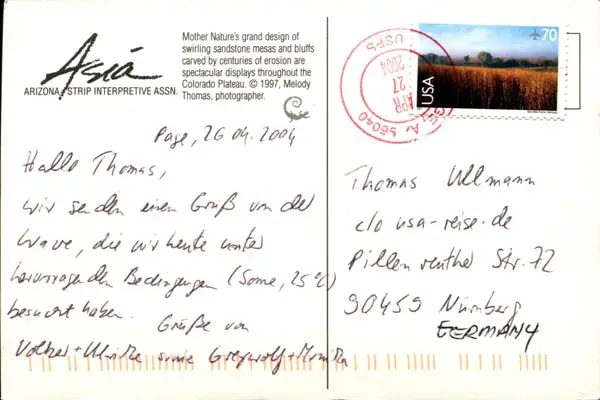 Asia
ARIZONA STRIP INTERPRETIVE ASSN.
Mother Nature's grand design of
swirling sandstone mesas and bluffs
carved by centuries of erosion are
spectacular displays throughout the
Colorado Plateau. © 1997, Melody
Thomas, photographer.
USPS
2004
27
APR
AZ 86040
70
USA
Page, 26.04.2004
Hallo Thomas,
wir senden einen Gruß von der
Wave, die wir heute unter
hervorragenden Bedingungen (Sonne, 25°C)
besucht haben.
Grüße von
Volker + Ulrike sowie Greywolf + Monika
Thomas Ullmann
c/o usa-reise.de
Pillenreuther Str. 72
90459 Nürnberg
GERMANY